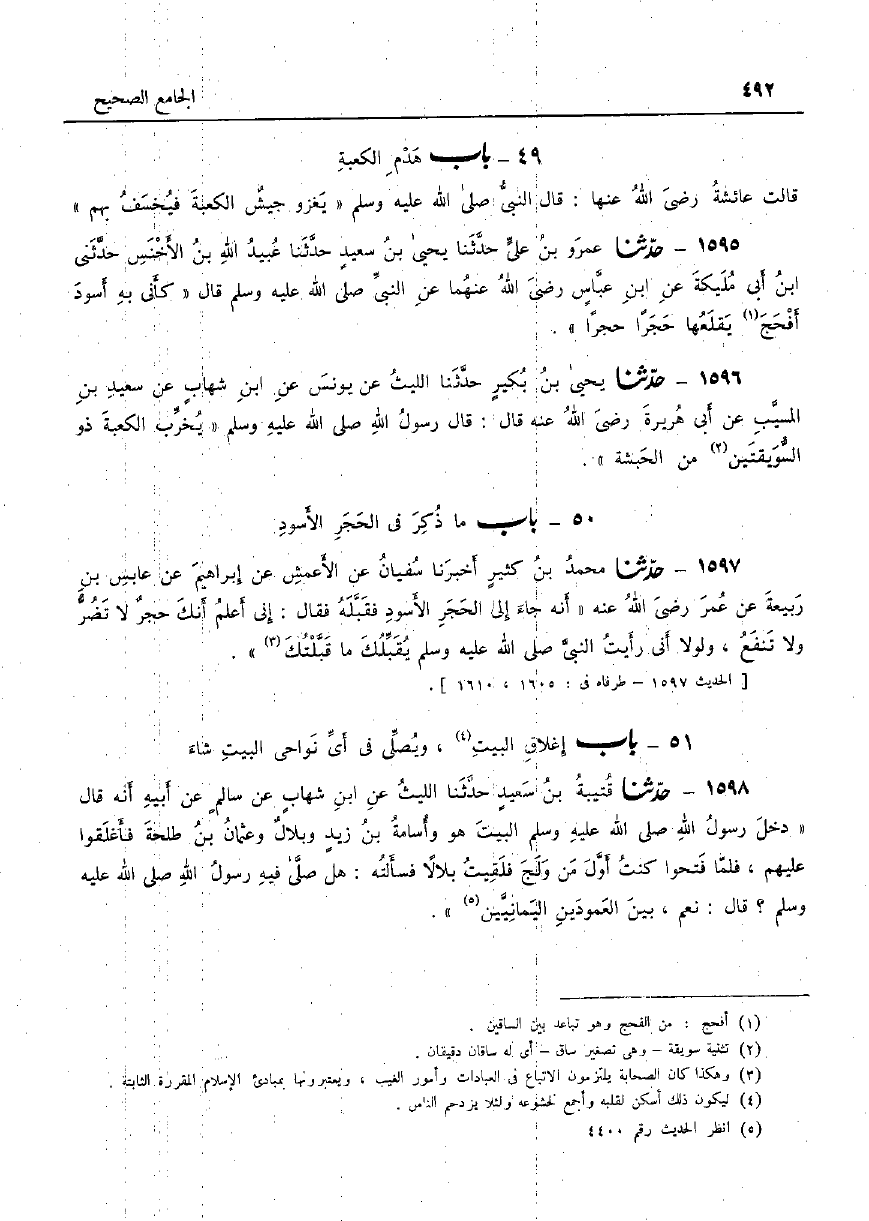 ٤٩٢
الجامع الصحيح
٤٩ – باب هَدْمِ الكعبةِ
قالت عائشةُ رضىَ اللهُ عنها : قال النبىُّ صلىٰ الله عليه وسلم « يَغزو جيشٌ الكعبةَ فيُخسَفُ بهم »
١٥٩٥ – حدّثنا عمرَو بنُ علىٍّ حدَّثَنا يحيىٰ بنُ سعيدٍ حدَّثَنا عُبيدُ اللهِ بنُ الأخْنَسِ حدَّثَنى
ابنُ أبى مُلَيكةَ عن ابنِ عبَّاسٍ رضىَ اللهُ عنهُما عن النبىِّ صلى الله عليه وسلم قال « كأنى بهِ أسودَ
أفْحَجَ(١) يَقلَعُها حَجَرًا حجرًا » .
١٥٩٦ – حدّثنا يحيىٰ بنُ بُكيرٍ حدَّثَنا الليثُ عن يونسَ عنِ ابنِ شهابٍ عن سعيدِ بنِ
المسيَّبِ عن أبى هُريرةَ رضىَ اللهُ عنه قال : قال رسولُ اللهِ صلى الله عليهِ وسلم « يُخرِّب الكعبةَ ذو
السُّوَيقتَين(٢) من الحَبشة » .
٥٠ – باب ما ذُكِرَ فى الحَجَرِ الأسودِ
١٥٩٧ – حدّثنا محمدُ بنُ كثيرٍ أخبرَنا سُفيانُ عنِ الأعمشِ عن إبراهيمَ عن عابسِ بنِ
رَبيعةَ عن عُمرَ رضىَ اللهُ عنه « أنه جاءَ إلىٰ الحَجَرِ الأسودِ فقبَّلَهُ فقال : إنى أعلمُ أنكَ حجرٌ لا تَضُرُّ
ولا تَنفَعُ ، ولولا أنى رأيتُ النبىَّ صلى الله عليه وسلم يُقَبِّلُكَ ما قَبَّلْتُكَ(٣) » .
[ الحديث ١٥٩٧ – طرفاه فى : ١٦٠٥ ، ١٦١٠ ] .
٥١ – باب إغلاقِ البيتِ(٤) ، ويُصلِّى فى أىِّ نَواحى البيتِ شاءَ
١٥٩٨ – حدّثنا قُتيبةُ بنُ سَعيدٍ حدَّثَنا الليثُ عنِ ابنِ شهابٍ عن سالمٍ عن أبيهِ أنه قال
« دخلَ رسولُ اللهِ صلى الله عليهِ وسلم البيتَ هو وأُسامةُ بنُ زيدٍ وبلالٌ وعثمانُ بنُ طلحةَ فأغلَقوا
عليهم ، فلمَّا فَتحوا كنتُ أوَّلَ مَن وَلَجَ فلَقِيتُ بلالًا فسألتُه : هل صلَّىٰ فيهِ رسولُ اللهِ صلى الله عليه
وسلم ؟ قال : نعم ، بينَ العَمودَينِ اليَمانِيَّين(٥) » .
(١) أفحج : من الفحج وهو تباعد بين الساقين .
(٢) تثنية سويقة – وهى تصغير ساق – أى له ساقان دقيقان .
(٣) وهكذا كان الصحابة يلتزمون الاتباع فى العبادات وأمور الغيب ، ويعتبرونها بمبادئ الإسلام المقررة الثابتة .
(٤) ليكون ذلك أسكن لقلبه وأجمع لخشوعه ولئلا يزدحم الناس .
(٥) انظر الحديث رقم ٤٤٠٠